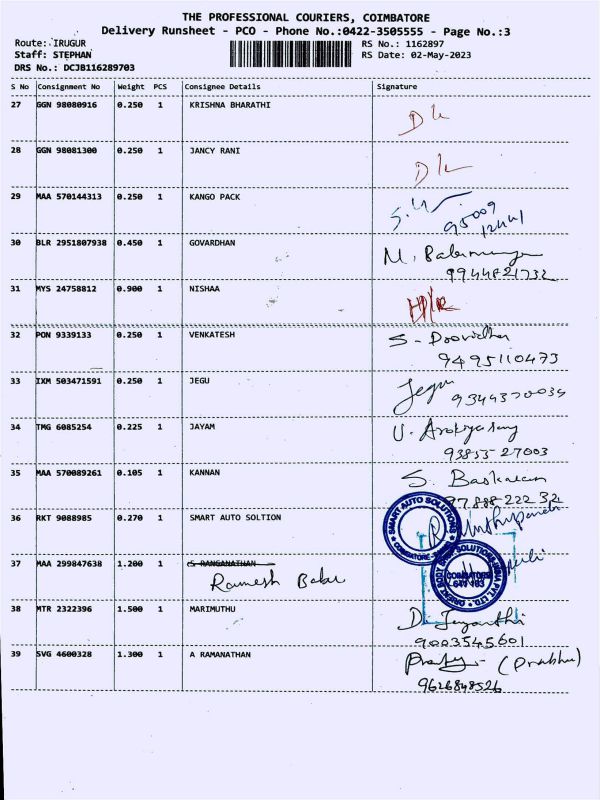 THE PROFESSIONAL COURIERS, COIMBATORE
Delivery Runsheet - PCO - Phone No.:0422-3505555 - Page No.:3
Route: IRUGUR RS No.: 1162897
Staff: STEPHAN RS Date: 02-May-2023
DRS No.: DCJB116289703
S No Consignment No Weight PCS Consignee Details Signature
27 GGN 98080916 0.250 1 KRISHNA BHARATHI
28 GGN 98081300 0.250 1 JANCY RANI
29 MAA 570144313 0.250 1 KANGO PACK
95009
12441
30 BLR 2951807938 0.450 1 GOVARDHAN
9944821732
31 MYS 24758812 0.900 1 NISHAA
32 PON 9339133 0.250 1 VENKATESH
9495110473
33 IXM 503471591 0.250 1 JEGU Jegu
34 TMG 6085254 0.225 1 JAYAM
93855 27003
35 MAA 570089261 0.105 1 KANNAN S. Baskaran
97888 222 32
36 RKT 9088985 0.270 1 SMART AUTO SOLTION
SMART AUTO SOLUTIONS
COIMBATORE
37 MAA 299847638 1.200 1 S RANGANATHAN
Ramesh Babu
COIMBATORE
641 103
38 MTR 2322396 1.500 1 MARIMUTHU D. Jeyanthi
9003545601
39 SVG 4600328 1.300 1 A RAMANATHAN (Prabhu)
9626848526